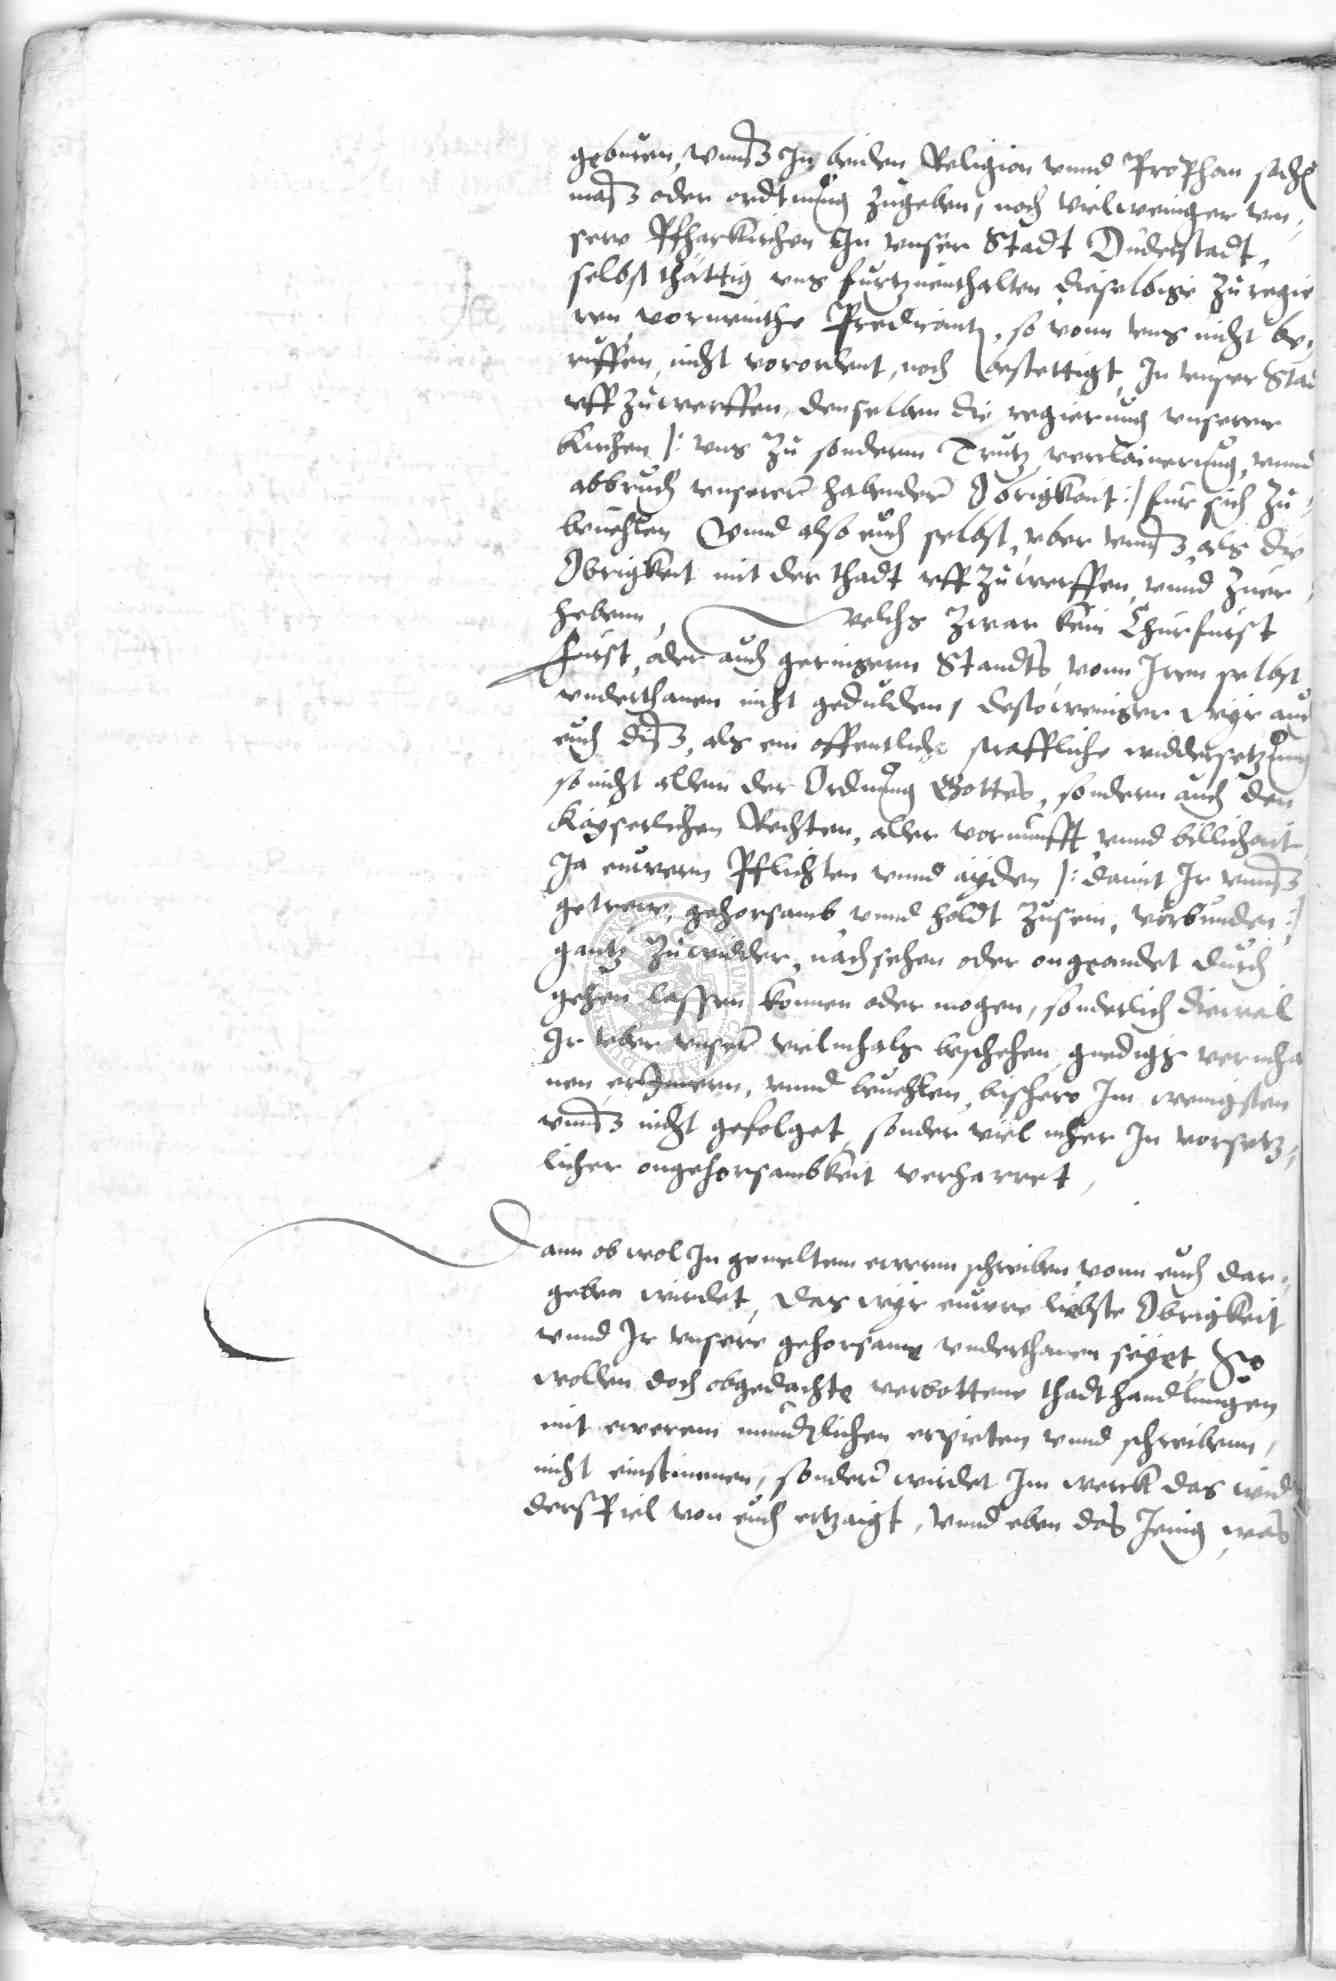 geburen, vnns In beiden Religion vnnd Prophan sachen
mass oder ordtnung zugeben, noch vielweniger vn-
sere Pfharkirchen In vnser Stadt Duderstadt,
selbst thättig vns furtzuenthalten, dieselbige zu regie
ren, vermeinthe Predicanten, so vonn vns nicht be-
ruffen, nicht verordent, noch bestettigt, In vnser Stad
vff zuwerffen, denselben die regierung vnserer
kirchen /: vns zu sonderm Trutz, verclainerung, vnnd
abbruch vnserer habender Obrigkeit :/ fur sich zu-
beuehlen Vnnd also euch selbst, vber vnns, als die
Obrigkeit mit der thadt vff zuwerffen, vnnd zuer-
hebenn, welchs zwar kein Churfurst
furst, oder auch geringern Standts, vonn Iren selbst
vnderthanen nicht gedulden, destoweniger wyr auch
euch diss, als ein offentliche straffliche widdersetzung
so nicht allein der Ordnung Gottes, sondern auch den
kayserlichen Rechten, aller vornunfft vnnd billicheit
Ja euwern Pflichten vnnd ayden /: damit Ir vnns
getrew, gehorsamb vnnd holdt zusein, verbunden :/
gantz zuwidder, nachsehen oder ongeandet durch
gehen lassen konnen oder mogen, sonderlich dieweil
Ir vber vnser vielmhals beschehen gnedigs vermha
nen erInnern, vnnd beuehlen, bishero Im wenigsten
vnns nicht gefolget, sonder viel mher In vorsetz-
licher ongehorsambkeit verharret,
Dann ob wol In gemeltem ewerm schreiben vonn euch dar-
geben wirdet, das wyr euwere liebste Obrigkeit
vnnd Ir vnsere gehorsame vnderthanen seyet, So
wollen doch obgedachte verbottene thadthandlungen
mit ewerem mundtlichen erpieten vnnd schreibenn,
nicht einstimmen, sonder wirdet Im werck das wid
derspiel von euch ertzaigt, vnnd eben das Jenig, was